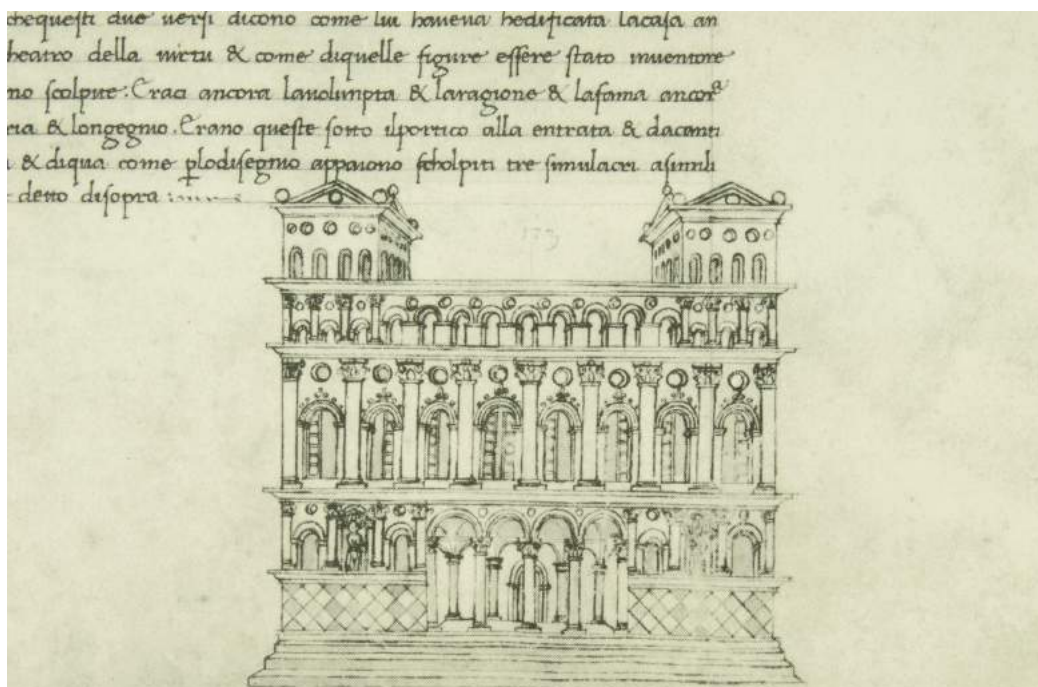 chequesti due versi dicono come lui haueua hedificata lacasa an
heatro della uirtu & come diquelle figure essere stato inuentore
no scolpite. Eraci ancora lauolunpta & laragione & lafama ancora
ria & longegnio. Erano queste sotto ilportico alla entrata & dacanti
& diqua come plodisegnio appaiono scholpiti tre simulacri asimili
detto disopra
173